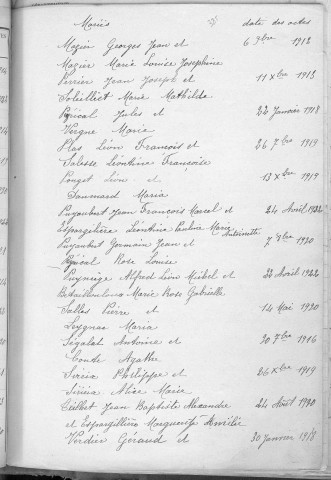 Mariés date des actes
Mazin Georges Jean et 6 9bre 1912
Mazier Marie Louise Joséphine
Perrier Jean Joseph et 11 Xbre 1913
Soleilliet Marie Mathilde
Pascal Jules et 22 Janvier 1918
Vergne Maria
Plas Léon François et 26 7bre 1919
Salesse Léontine Françoise
Pouget Léon et 13 Xbre 1919
Daumard Maria
Puyaubert Jean François Marcel et 24 Avril 1922
Espargelière Léontine Pauline Marie Antoinette
Puyaubert Germain Jean et 7 9bre 1920
Rose Louise
Alfred Léon Michel et 22 Avril 1922
Marie Rose Gabrielle
Salles Pierre et 14 Mai 1920
Leygnac Maria
Ségalat Antoine et 20 7bre 1916
Conte Agathe
Sirieix Philippe et 26 Xbre 1919
Alice Marie
Jean Baptiste Alexandre 24 Août 1920
et Espargillière Marguerite Amélie
Verdier Géraud et 30 Janvier 1918